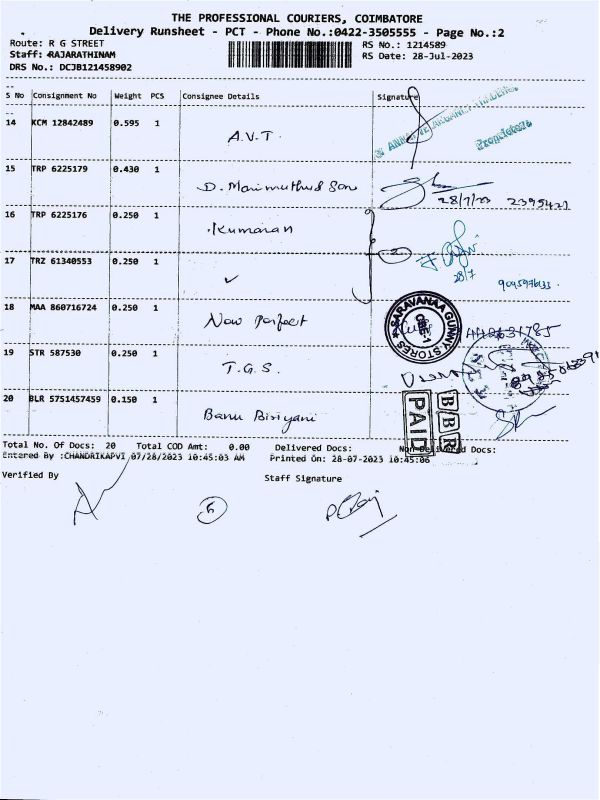 THE PROFESSIONAL COURIERS, COIMBATORE
Delivery Runsheet - PCT - Phone No.:0422-3505555 - Page No.:2
Route: R G STREET RS No.: 1214589
Staff: RAJARATHINAM RS Date: 28-Jul-2023
DRS No.: DCJB121458902
S No Consignment No Weight PCS Consignee Details Signature
14 KCM 12842489 0.595 1 A.V.T.
Proprietors
15 TRP 6225179 0.430 1 D. Marimuthu & Son 28/7/23
16 TRP 6225176 0.250 1 Kumaran
2
17 TRZ 61340553 0.250 1 ✓ 28/7
18 MAA 860716724 0.250 1 New Perfect
SARAVANAA GUNNY STORES CBE-1
19 STR 587530 0.250 1 T.G.S.
20 BLR 5751457459 0.150 1 Banu Biriyani
BBR PAID
Total No. Of Docs: 20 Total COD Amt: 0.00 Delivered Docs: Non-Delivered Docs:
Entered By :CHANDRIKAPVI 07/28/2023 10:45:03 AM Printed On: 28-07-2023 10:45:06
Verified By Staff Signature